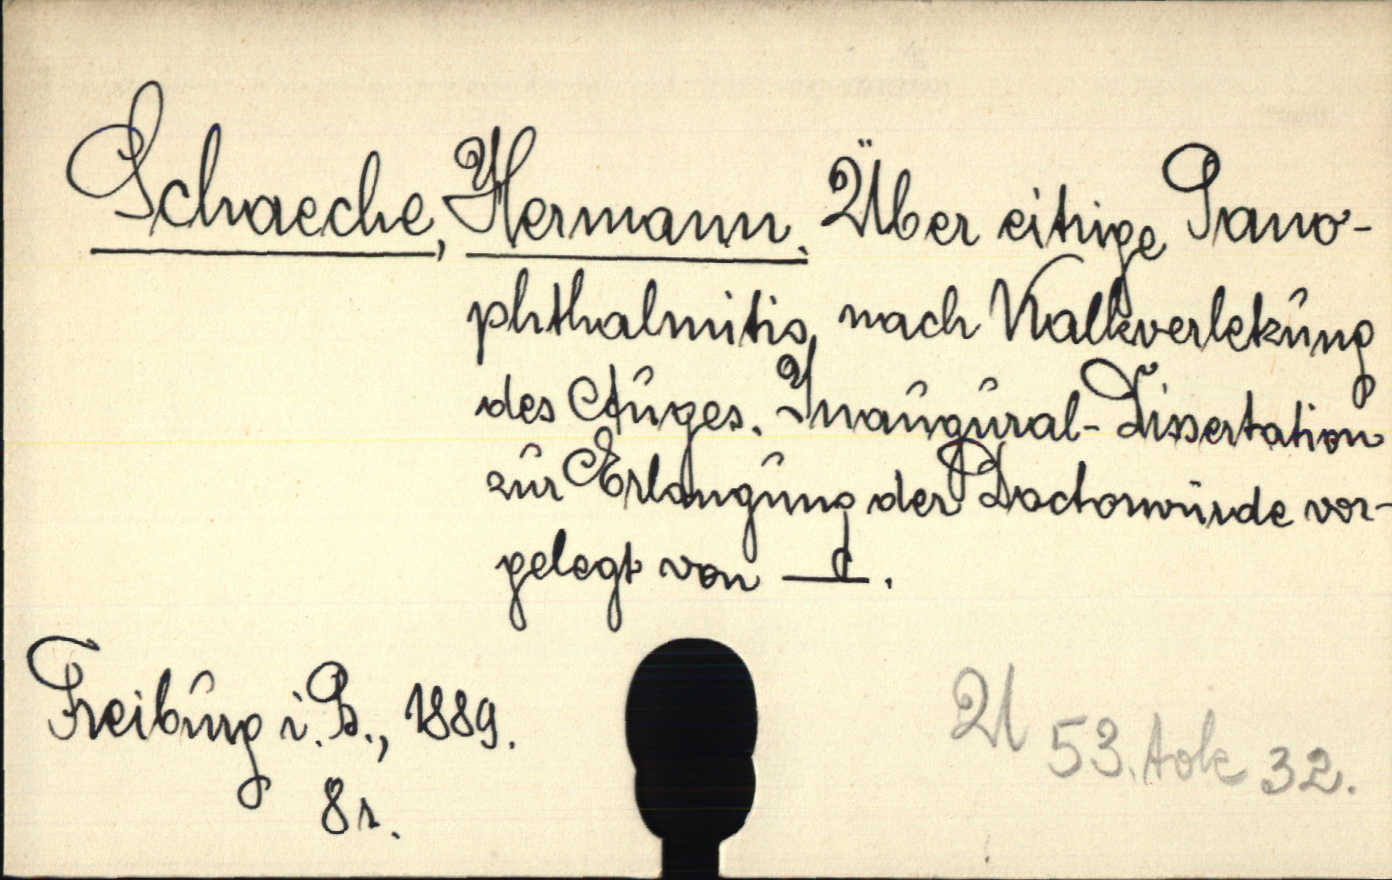 Schaeche, Hermann. Über eitrige Pano-
phthalmitis nach Kalkverletzung
des Auges. Inaugural-Dissertation
zur Erlangung der Doctorwürde vor-
gelegt von —.
Freiburg i. B., 1889.
8r.
U 53. 32.